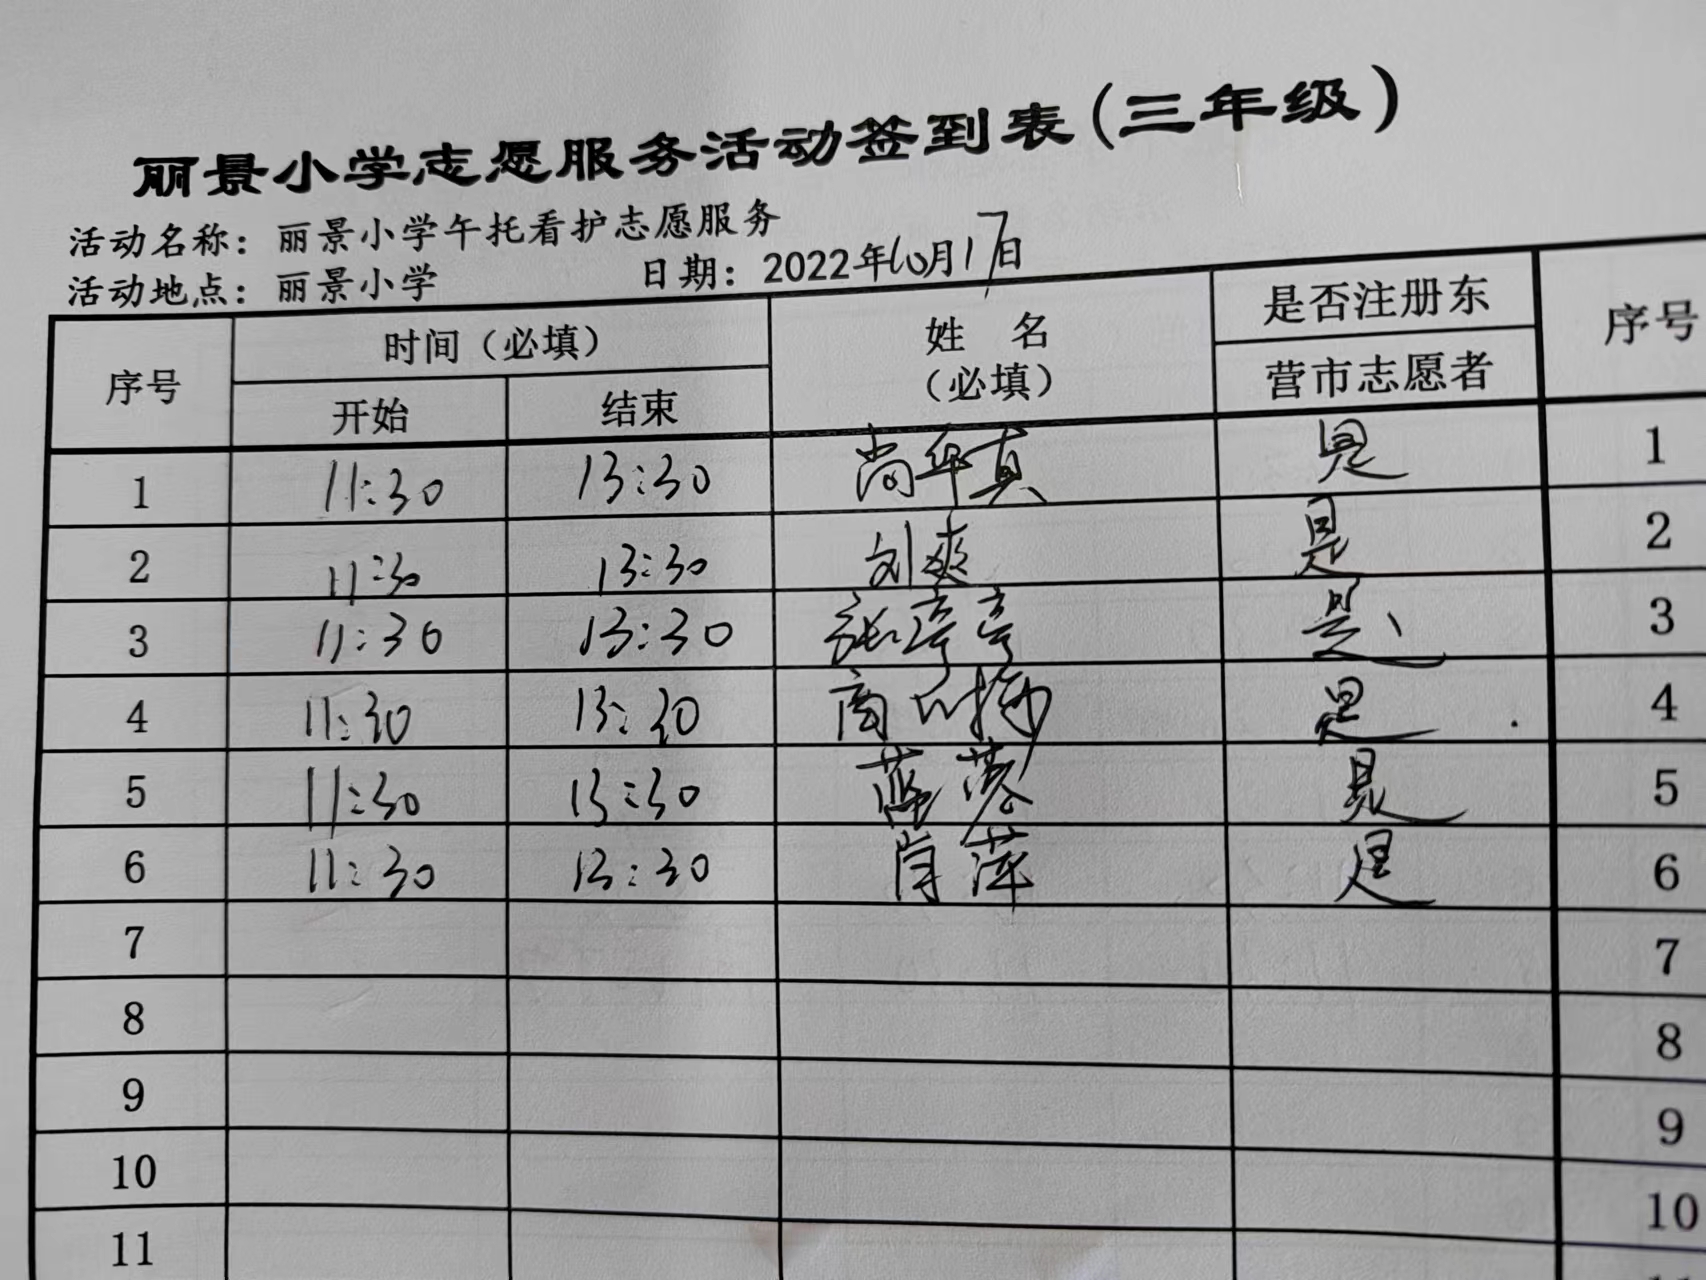 丽景小学志愿服务活动签到表(三年级)
活动名称：丽景小学午托看护志愿服务
活动地点：丽景小学 日期：2022年10月17日
序号 时间（必填） 姓 名 是否注册东 序号
开始 结束 （必填） 营市志愿者
1 11:30 13:30 尚华真 是 1
2 11:30 13:30 刘爽 是 2
3 11:30 13:30 张亭亭 是、 3
4 11:30 13:30 商 是 4
5 11:30 13:30 是 5
6 11:30 13:30 肖萍 是 6
7 7
8 8
9 9
10 10
11